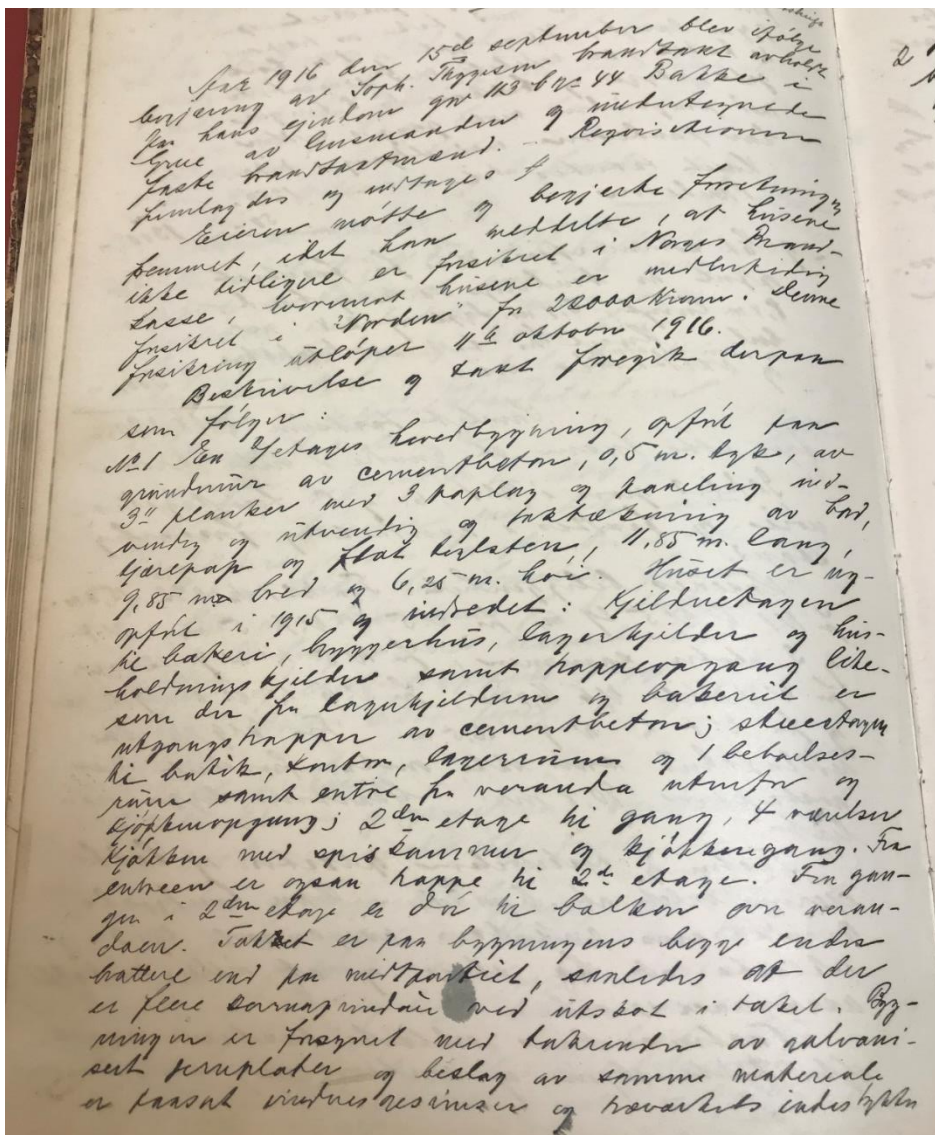 Aar 1916 den 15d september blev ifølge
begjæring av Soph. Thygesen brandtakst avholdt
paa hans eiendom gnr 113 bnr 44 Bakke i
Grue av lensmanden og undertegnede
faste brandtakstmænd. – Requisitionen
fremlagdes og indtages
Eieren møtte og begjærte forretningen
fremmet, idet han meddelte, at husene
ikke tidligere er forsikret i Norges Brand-
kasse, hvorimot husene er midlertidig
forsikret i "Norden" for 28000 Kroner. Denne
forsikring utløper 11te oktober 1916.
Beskrivelse og takst foregik derpaa
som følger:
No 1 En 2 etages hovedbygning, opført paa
grundmur av cementbeton, 0,5 m. tyk, av
3" planker med 3 paplag og paneling ind-
vendig og utvendig og taktækning av bord,
tjærepap og flat teglsten, 11,85 m. lang,
9,85 m bred og 6,25 m. høi. Huset er ny-
opført i 1915 og indredet: Kjelderetagen
til bakeri, bryggerhus, lagerkjelder og hus-
holdningskjelder samt trappeopgang like-
som der fra lagerkjelderen og bakeriet er
utgangstrapper av cementbeton; stueetagen
til butik, kontor, lagerrum og 1 beboelses-
rum samt entre fra veranda utenfor og
kjøkkenopgang; 2den etage til gang, 4 værelser
kjøkken med spiskammer og kjøkkengang. Fra
entreen er ogsaa trappe til 2de etage. Fra gan-
gen i 2den etage er dør til balkon over veran-
daen. Taket er paa bygningens begge ender
brattere end paa midtpartiet, saaledes at der
er flere vinduer ved utskot i taket. Byg-
ningen er forsynet med takrender av galvani-
sert jernplater og beslag av samme materiale
er paasat vindues gesimser og træverkets endestykker